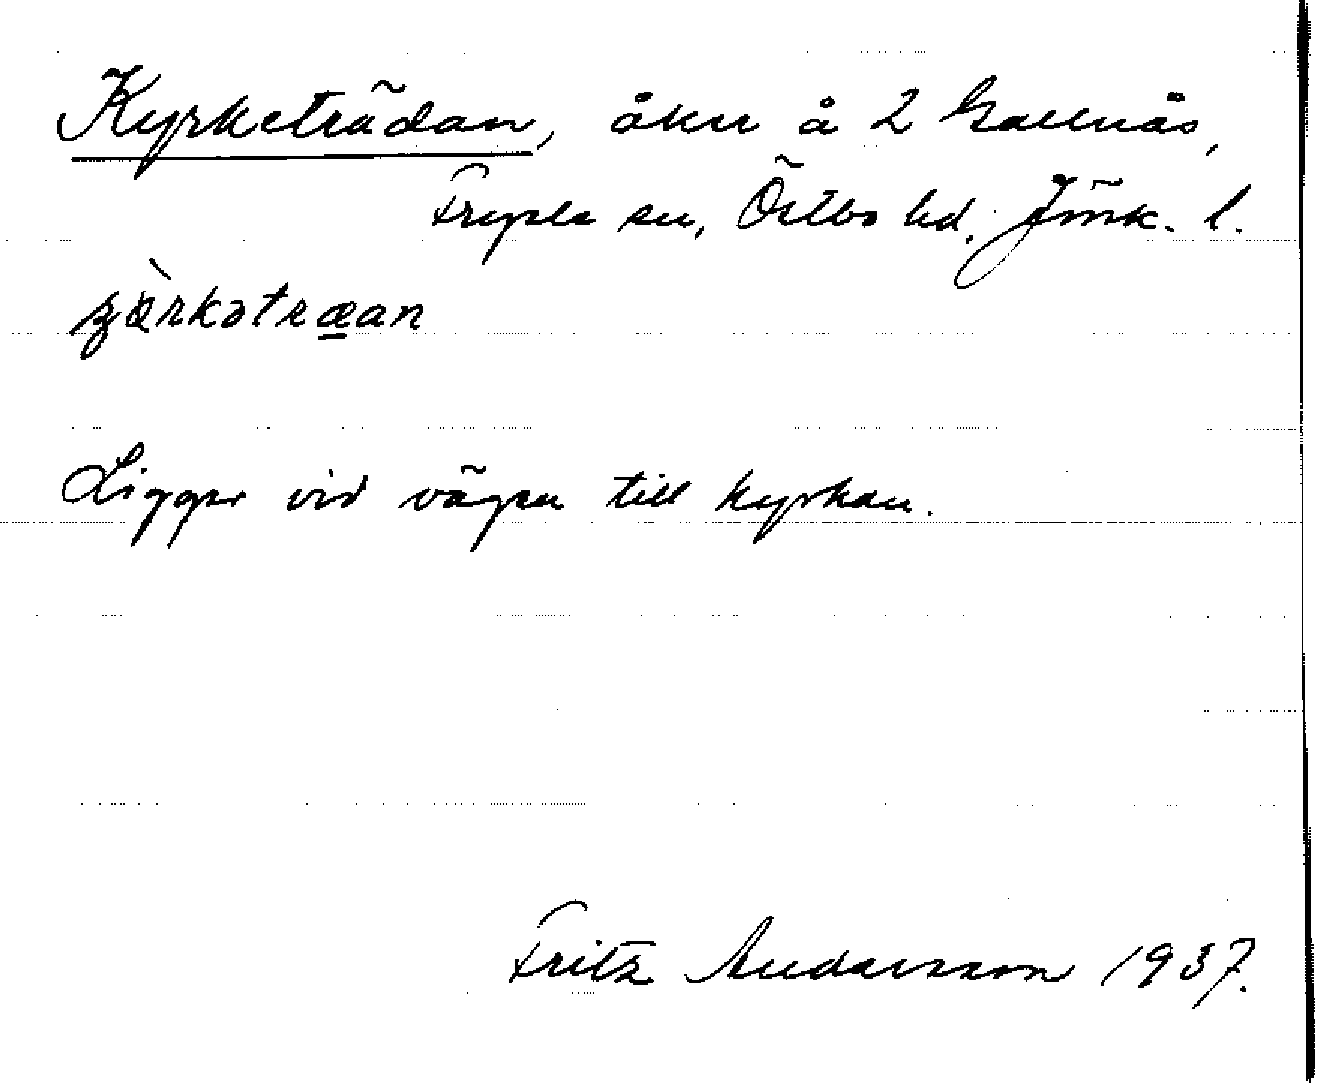 Kyrketrädan, åker å 2 Hallnäs,
Fryele sn, Östbo hd, Jönk. l.
ʒàrkətræan
Ligger vid vägen till kyrkan.
Fritz Andersson 1937.